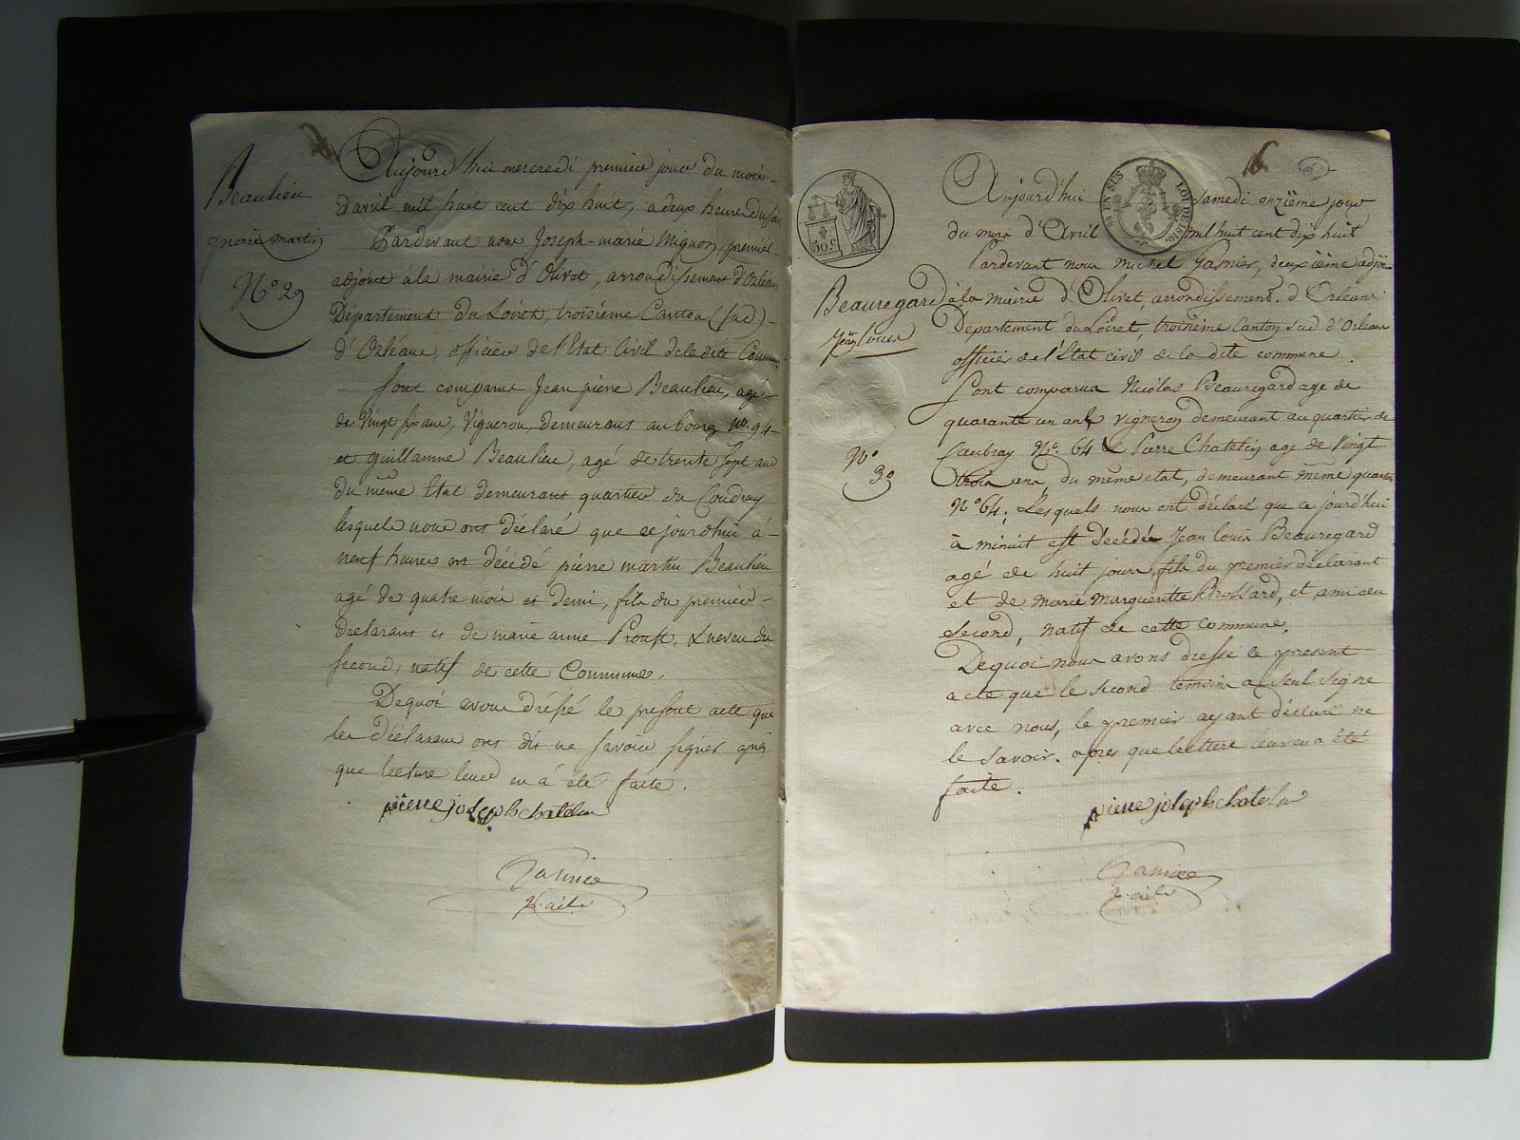 Beaulieu
pierre martin
N.° 29
Aujourd'hui mercredi premier jour du mois
d'avril mil huit cent dix huit, a deux heure du soir
Pardevant nous Joseph-marie Mignon, premier
adjoint à la mairie d'Olivet, arrondissement d'Orléans
Département du Loiret, troisième Canton (sud)
d'Orléans, officier de l'Etat Civil de la dite Commune
Sont comparus Jean pierre Beaulieu, agé
de Vingt six ans, Vigneron, demeurant au bourg n.° 94
et Guillaume Beaulieu, agé de trente sept ans
du même Etat demeurant quartier du Coudray
lesquels nous ont déclaré que cejourdhui à
neuf heures est décédé pierre martin Beaulieu
agé de quatre mois et demi, fils du premier
Déclarant et de marie anne Proust, & neveu du
second, natif de cette Commune.
De quoi avons dréssé le present acte que
les Déclarans ont dit ne savoir signer après
que lecture leur en á été faite.
pierre joseph chatelin
Garnier
6
Beauregard
Jean Louis
N.°
30
30 C
EN SUS
LOI DE 1816
Aujourd'hui samedi onzième jour
du mois d'Avril mil huit cent dix huit
Pardevant nous Michel Garnier, deuxième adjoint
à la mairie d'Olivet, arrondissement d'Orleans
Departement du Loiret, troisième Canton sud d'Orleans
officier de l'Etat civil de la dite commune.
Sont comparus Nicolas Beauregard age de
quarante un ans vigneron demeurant au quartier de
N.° 64 & Pierre Chatelin age de Vingt
trois ans, du même etat, demeurant même quartier
N.° 64; Lesquels nous ont déclaré que ce jourd'hui
à minuit est décédé Jean louis Beauregard
agé de huit jours, fils du premier déclarant
et de marie marguerite Brossard, et ami du
second, natif de cette commune.
De quoi nous avons dressé le present
acte que le second temoin a seul signé
avec nous, le premier ayant déclaré ne
le savoir. apres que lecture leur en a été
faite.
pierre joseph chatelin
Garnier